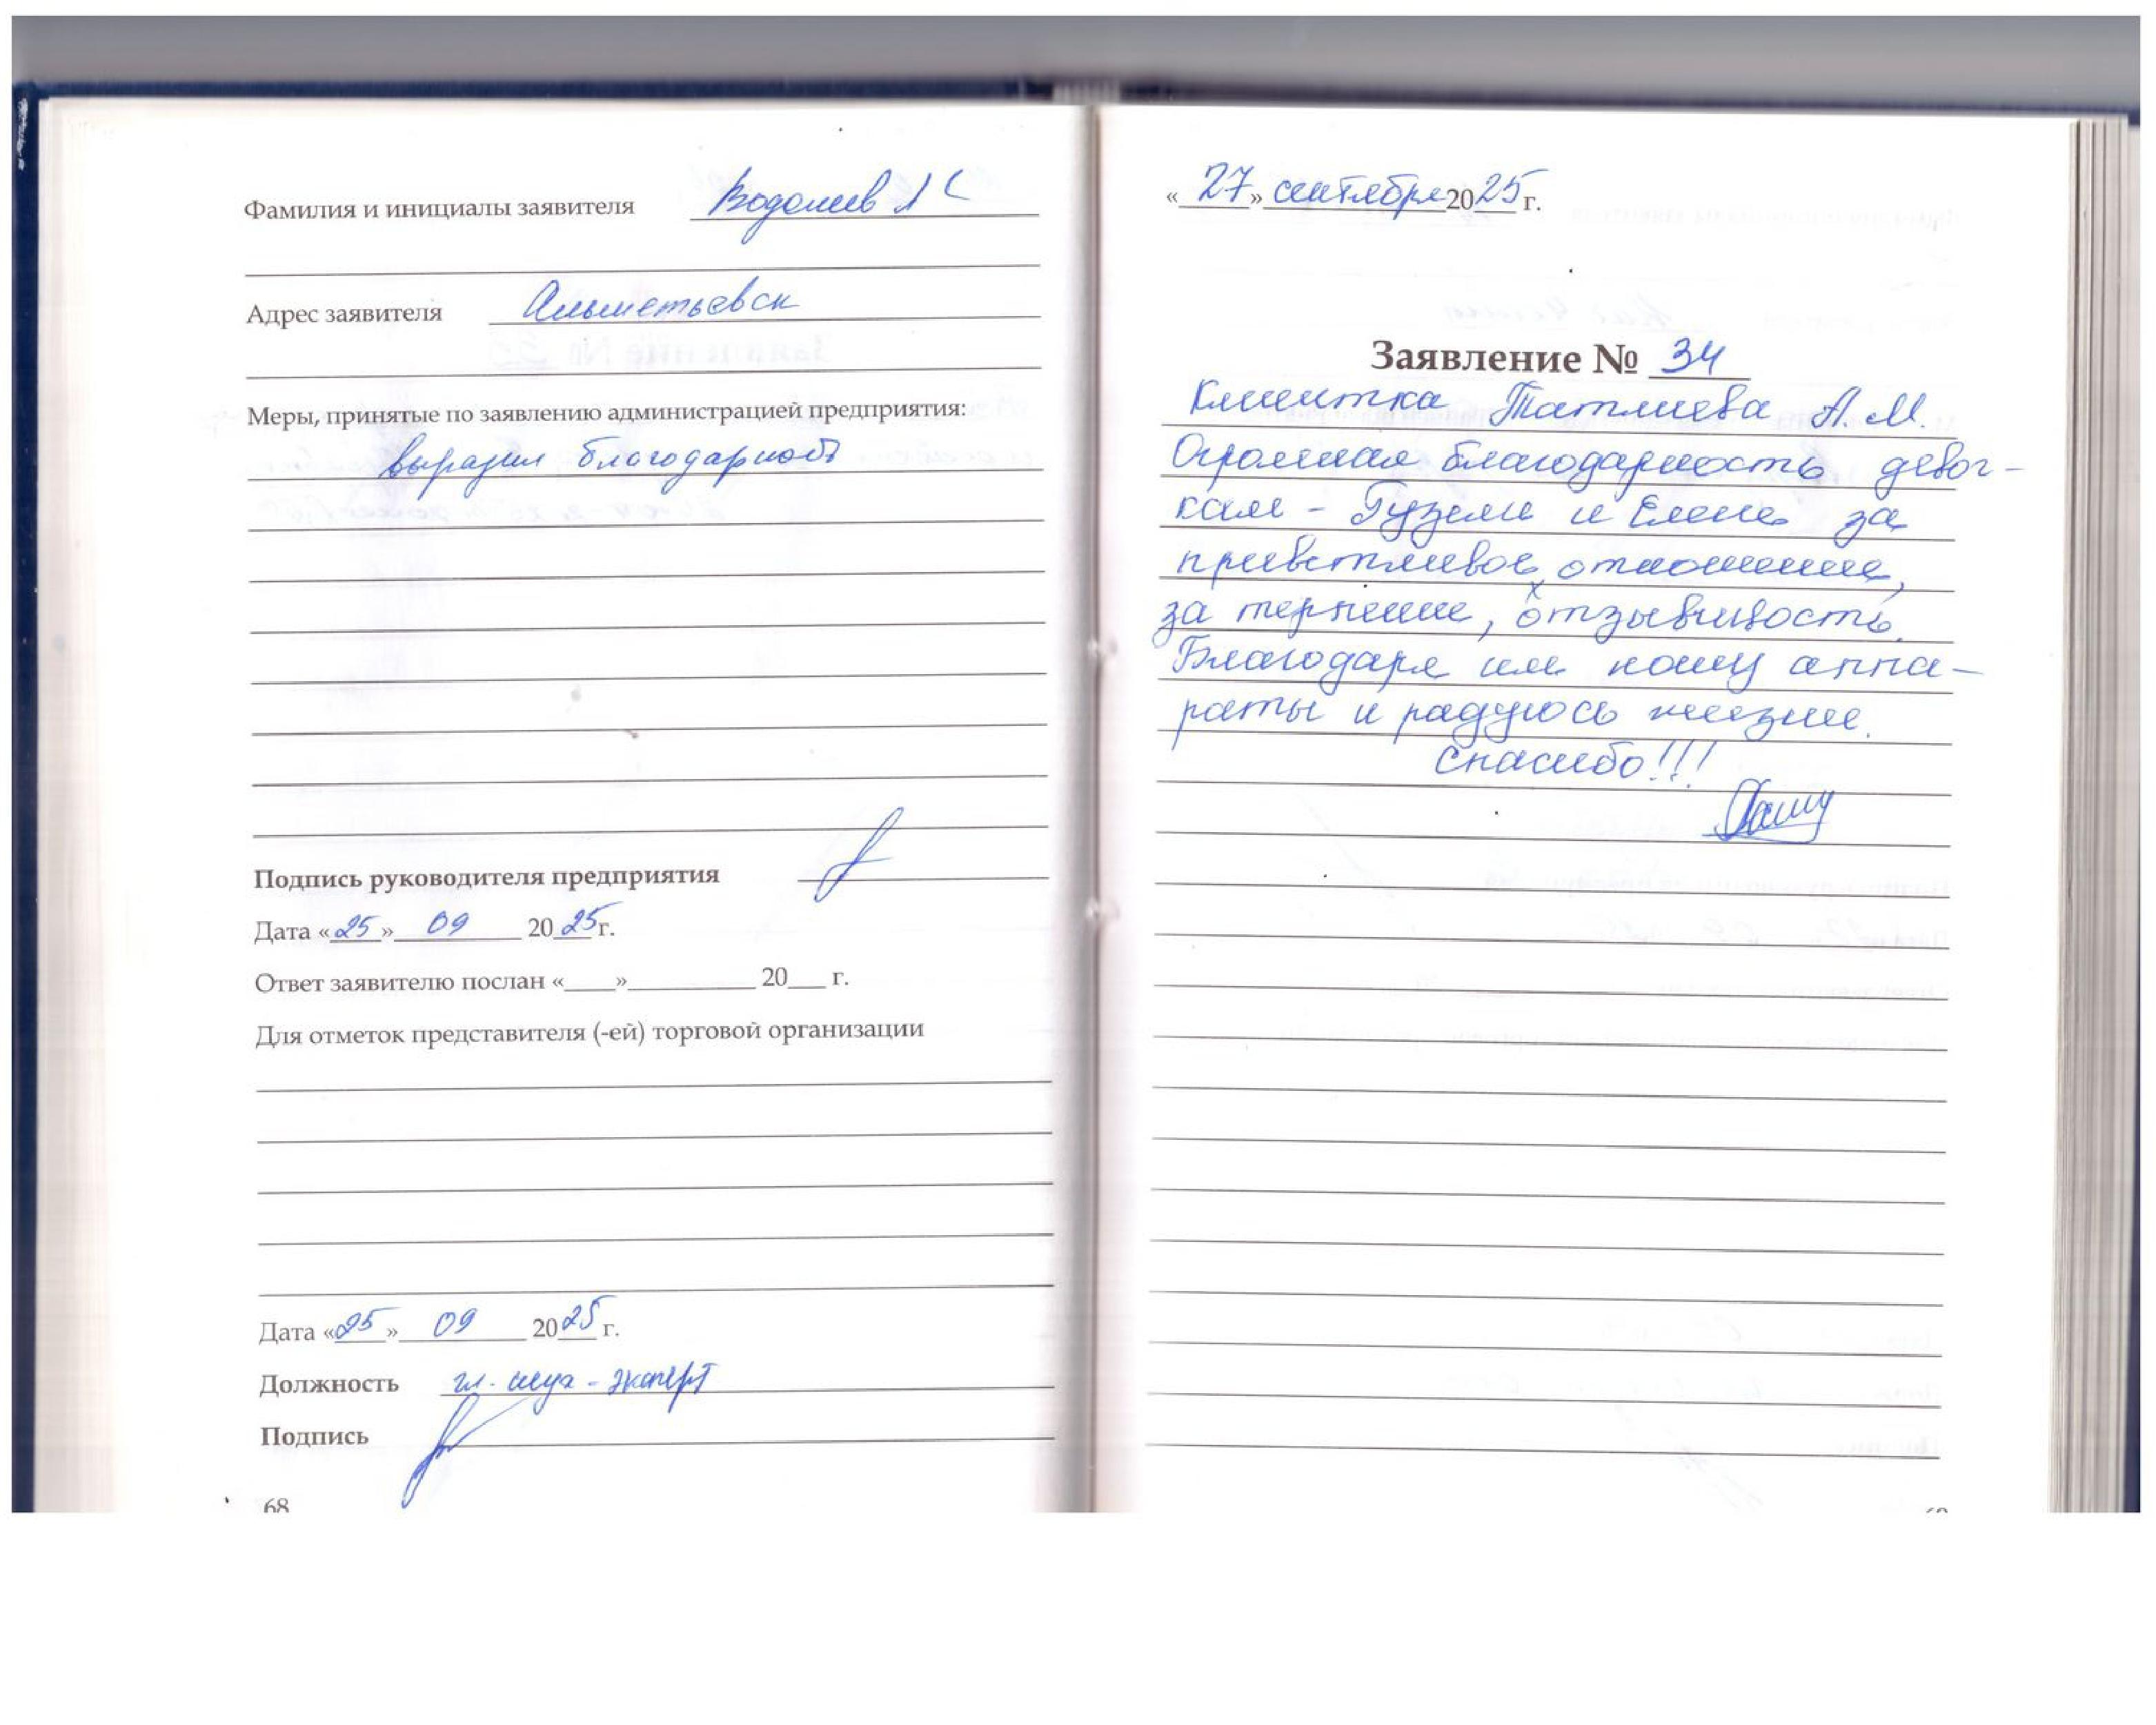 Фамилия и инициалы заявителя Водолеев Л С
Адрес заявителя Альметьевск
Меры, принятые по заявлению администрацией предприятия:
выразил благодарность
Подпись руководителя предприятия
Дата «25» 09 2025 г.
Ответ заявителю послан «____»__________ 20___ г.
Для отметок представителя (-ей) торговой организации
Дата «25» 09 2025 г.
Должность гл. - эксперт
Подпись
68
«27» сентября 2025 г.
Заявление № 34
Клиентка А.М.
Огромная благодарность девоч-
кам - Гузели и Елене за
приветливое отношение,
за терпение, отзывчивость.
Благодаря им ношу аппа-
раты и радуюсь жизни.
Спасибо!!!